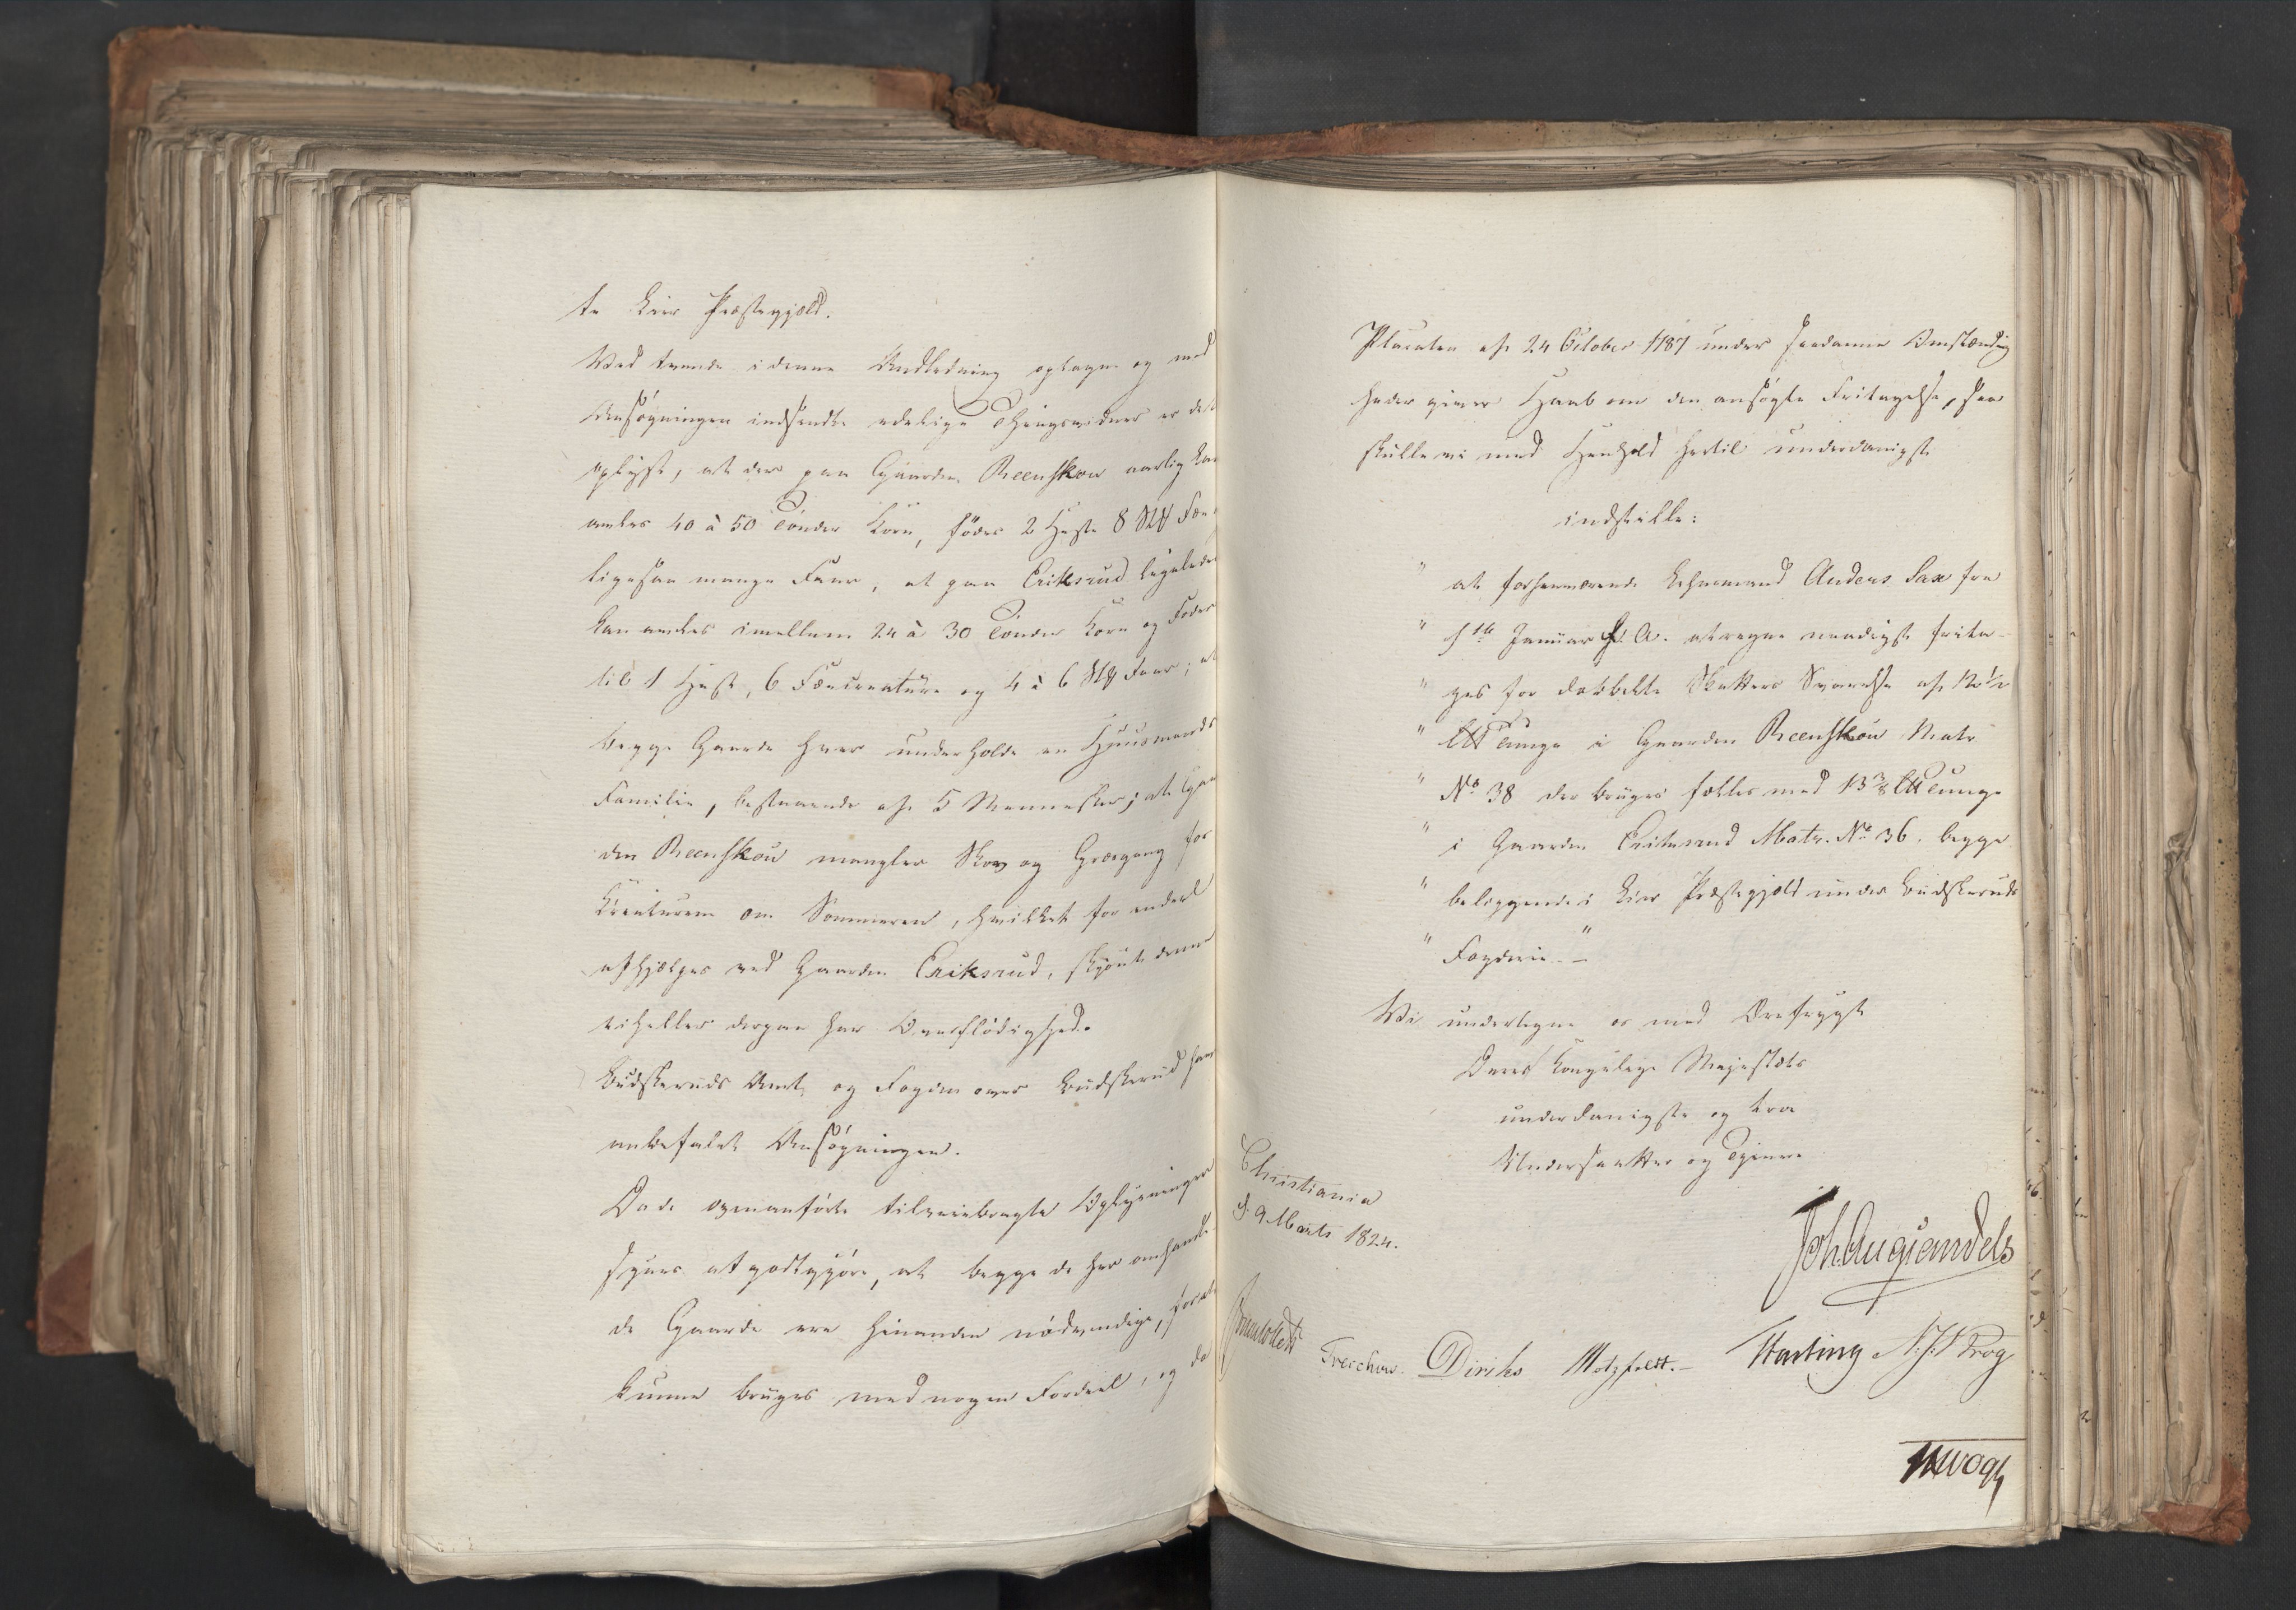 te Lier Præstegjæld.
Ved tvende i denne Anledning optagne og med
Ansøgningen indsendte edelige Thingsvidner er det
oplyst, at der paa Gaarden Reenskou aarlig kan
avles 40 à 50 Tönder Korn, födes 2 Heste 8 Stk Fæe
ligesaa mange Faar, at paa Eriksrud ligeledes
kan avles imellem 24 à 30 Tönder Korn og Foder
til 1 Hest, 6 Fæecreature og 4 à 6 Stk Faar; at
begge Gaarde hver underholde en Huusmands
Familie, bestaaende af 5 Mennesker; at Gaar
den Reenskou mangler Skov og Græsgang for
Creaturene om Sommeren, hvilket for endeel
afhjælpes ved Gaarden Eriksrud, skjönt denne
eiheller derpaa har Overflödighed.
Budskeruds Amt, og Fogden over Budskerud have
anbefalet Ansøgningen.
Da de ovenanførte tilveiebragte Oplysninger
synes at godtgjöre, at begge de her omhandle
de Gaarde ere hinanden nödvendige, for at
kunne bruges med nogen Fordeel, og da
Placaten af 24 October 1787 under saadanne Omstændig
heder giver Haab om den ansøgte Fritagelse, saa
skulle vi med Henhold hertil underdanigst
indstille:
" at forhenværende Lehnsmand Anders Sax fra
" 1ste Januar d. A. at regne naadigst frita-
" ges for dobbelte Skatters Svarelse af
" Lpd Tunge i Gaarden Reenskou Matr
" No 38 der bruges fælles med 13 3/8 Lpd Tunge
" i Gaarden Eriksrud Matr. No 36. begge
" beliggende i Lier Præstegjæld under Budskeruds
" Fogderie."-
Vi undertegne os med Ærefrygt
Deres Kongelige Majestæts
underdanigste og troe
Undersaatter og Tjenere
Christiania
d. 9 Marts 1824.
Joh. Aug. Sandels
Sommerhielm Treschow. Diriks Motzfeldt.- Fasting N. J. S. Krog
JHVogt